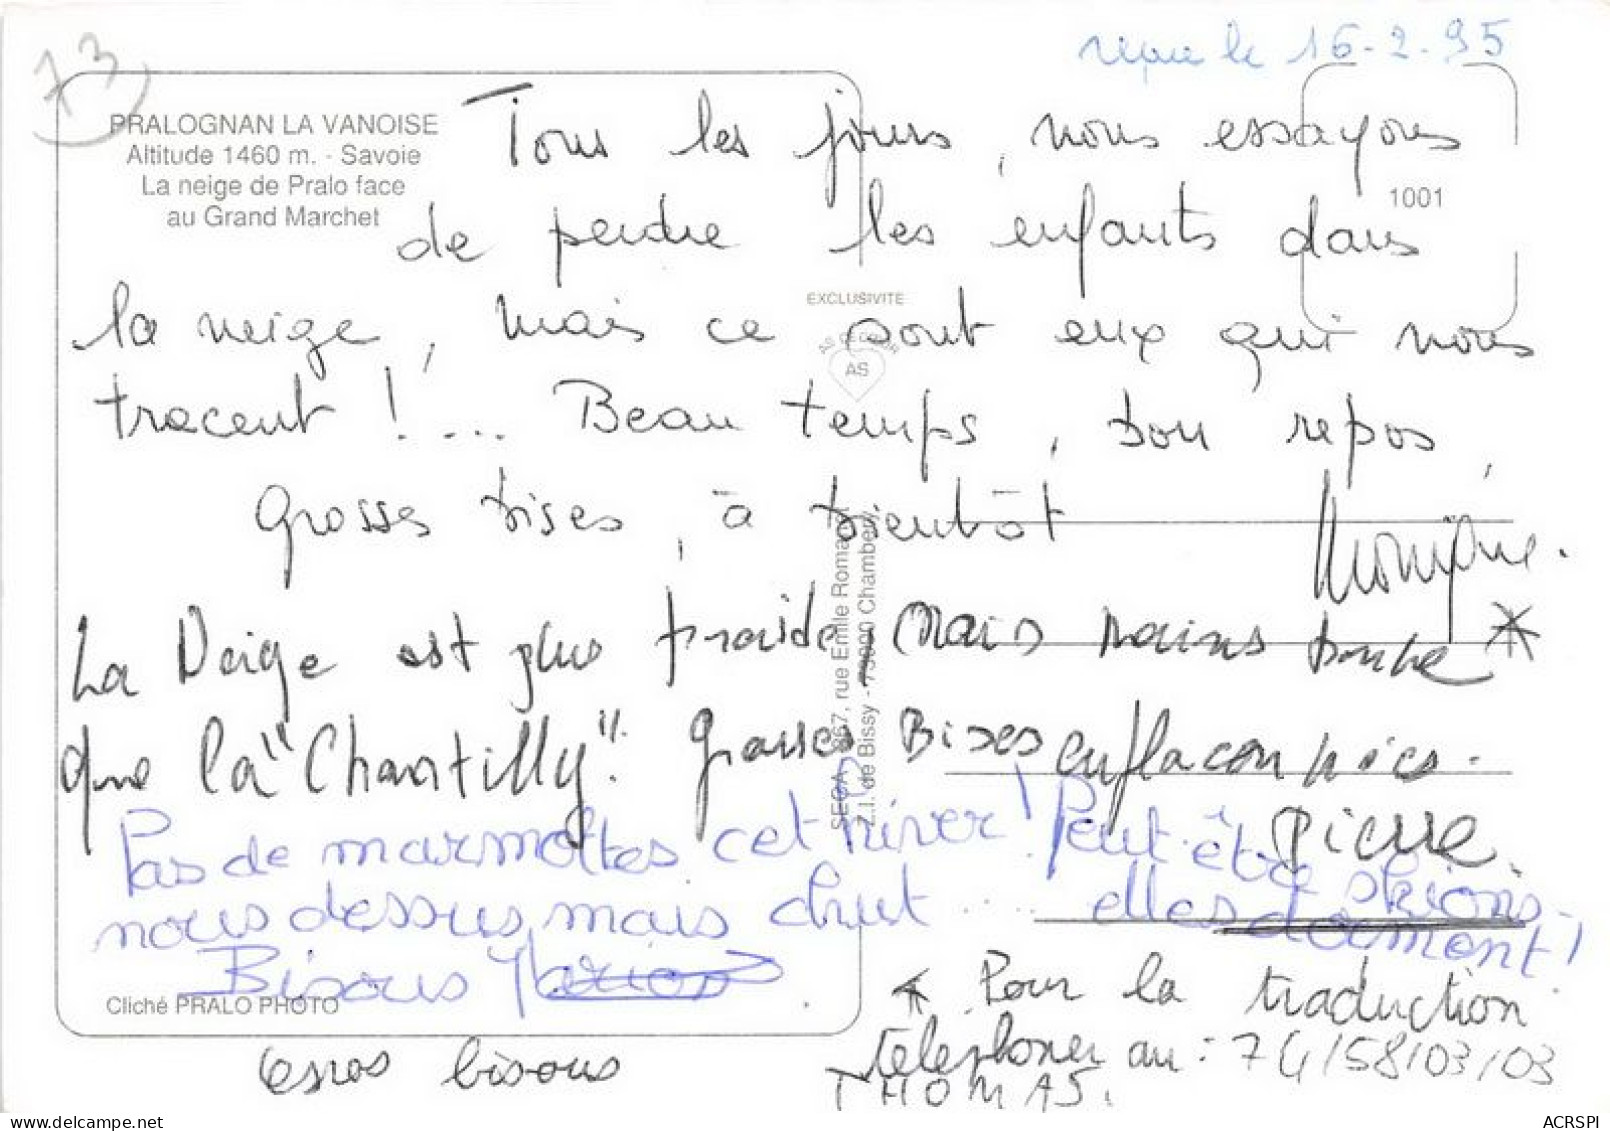 reçue le 16-2-95
73
PRALOGNAN LA VANOISE
Altitude 1460 m. - Savoie
La neige de Pralo face
au Grand Marchet
1001
Tous les jours, nous essayons
de perdre les enfants dans
la neige, mais ce sont eux qui nous
tracent !.... Beau temps, bon repos,
grosses bises, à bientôt
Monique.
EXCLUSIVITE
AS DE COEUR
AS
SEGA - 867, rue Emile Romanet
Z.I. de Bissy - 73000 Chambery
La Neige est plus froide, mais moins bonne *
que la "Chantilly". Grosses Bises enflaconnées.
Pierre.
Pas de marmottes cet hiver! Peut-être skions-
nous dessus, mais chut .... elles dorment!
Bisous Marion
Cliché PRALO PHOTO
* Pour la traduction
telephoner au : 74/58/03/03
Gros bisous THOMAS.
ACRSPI